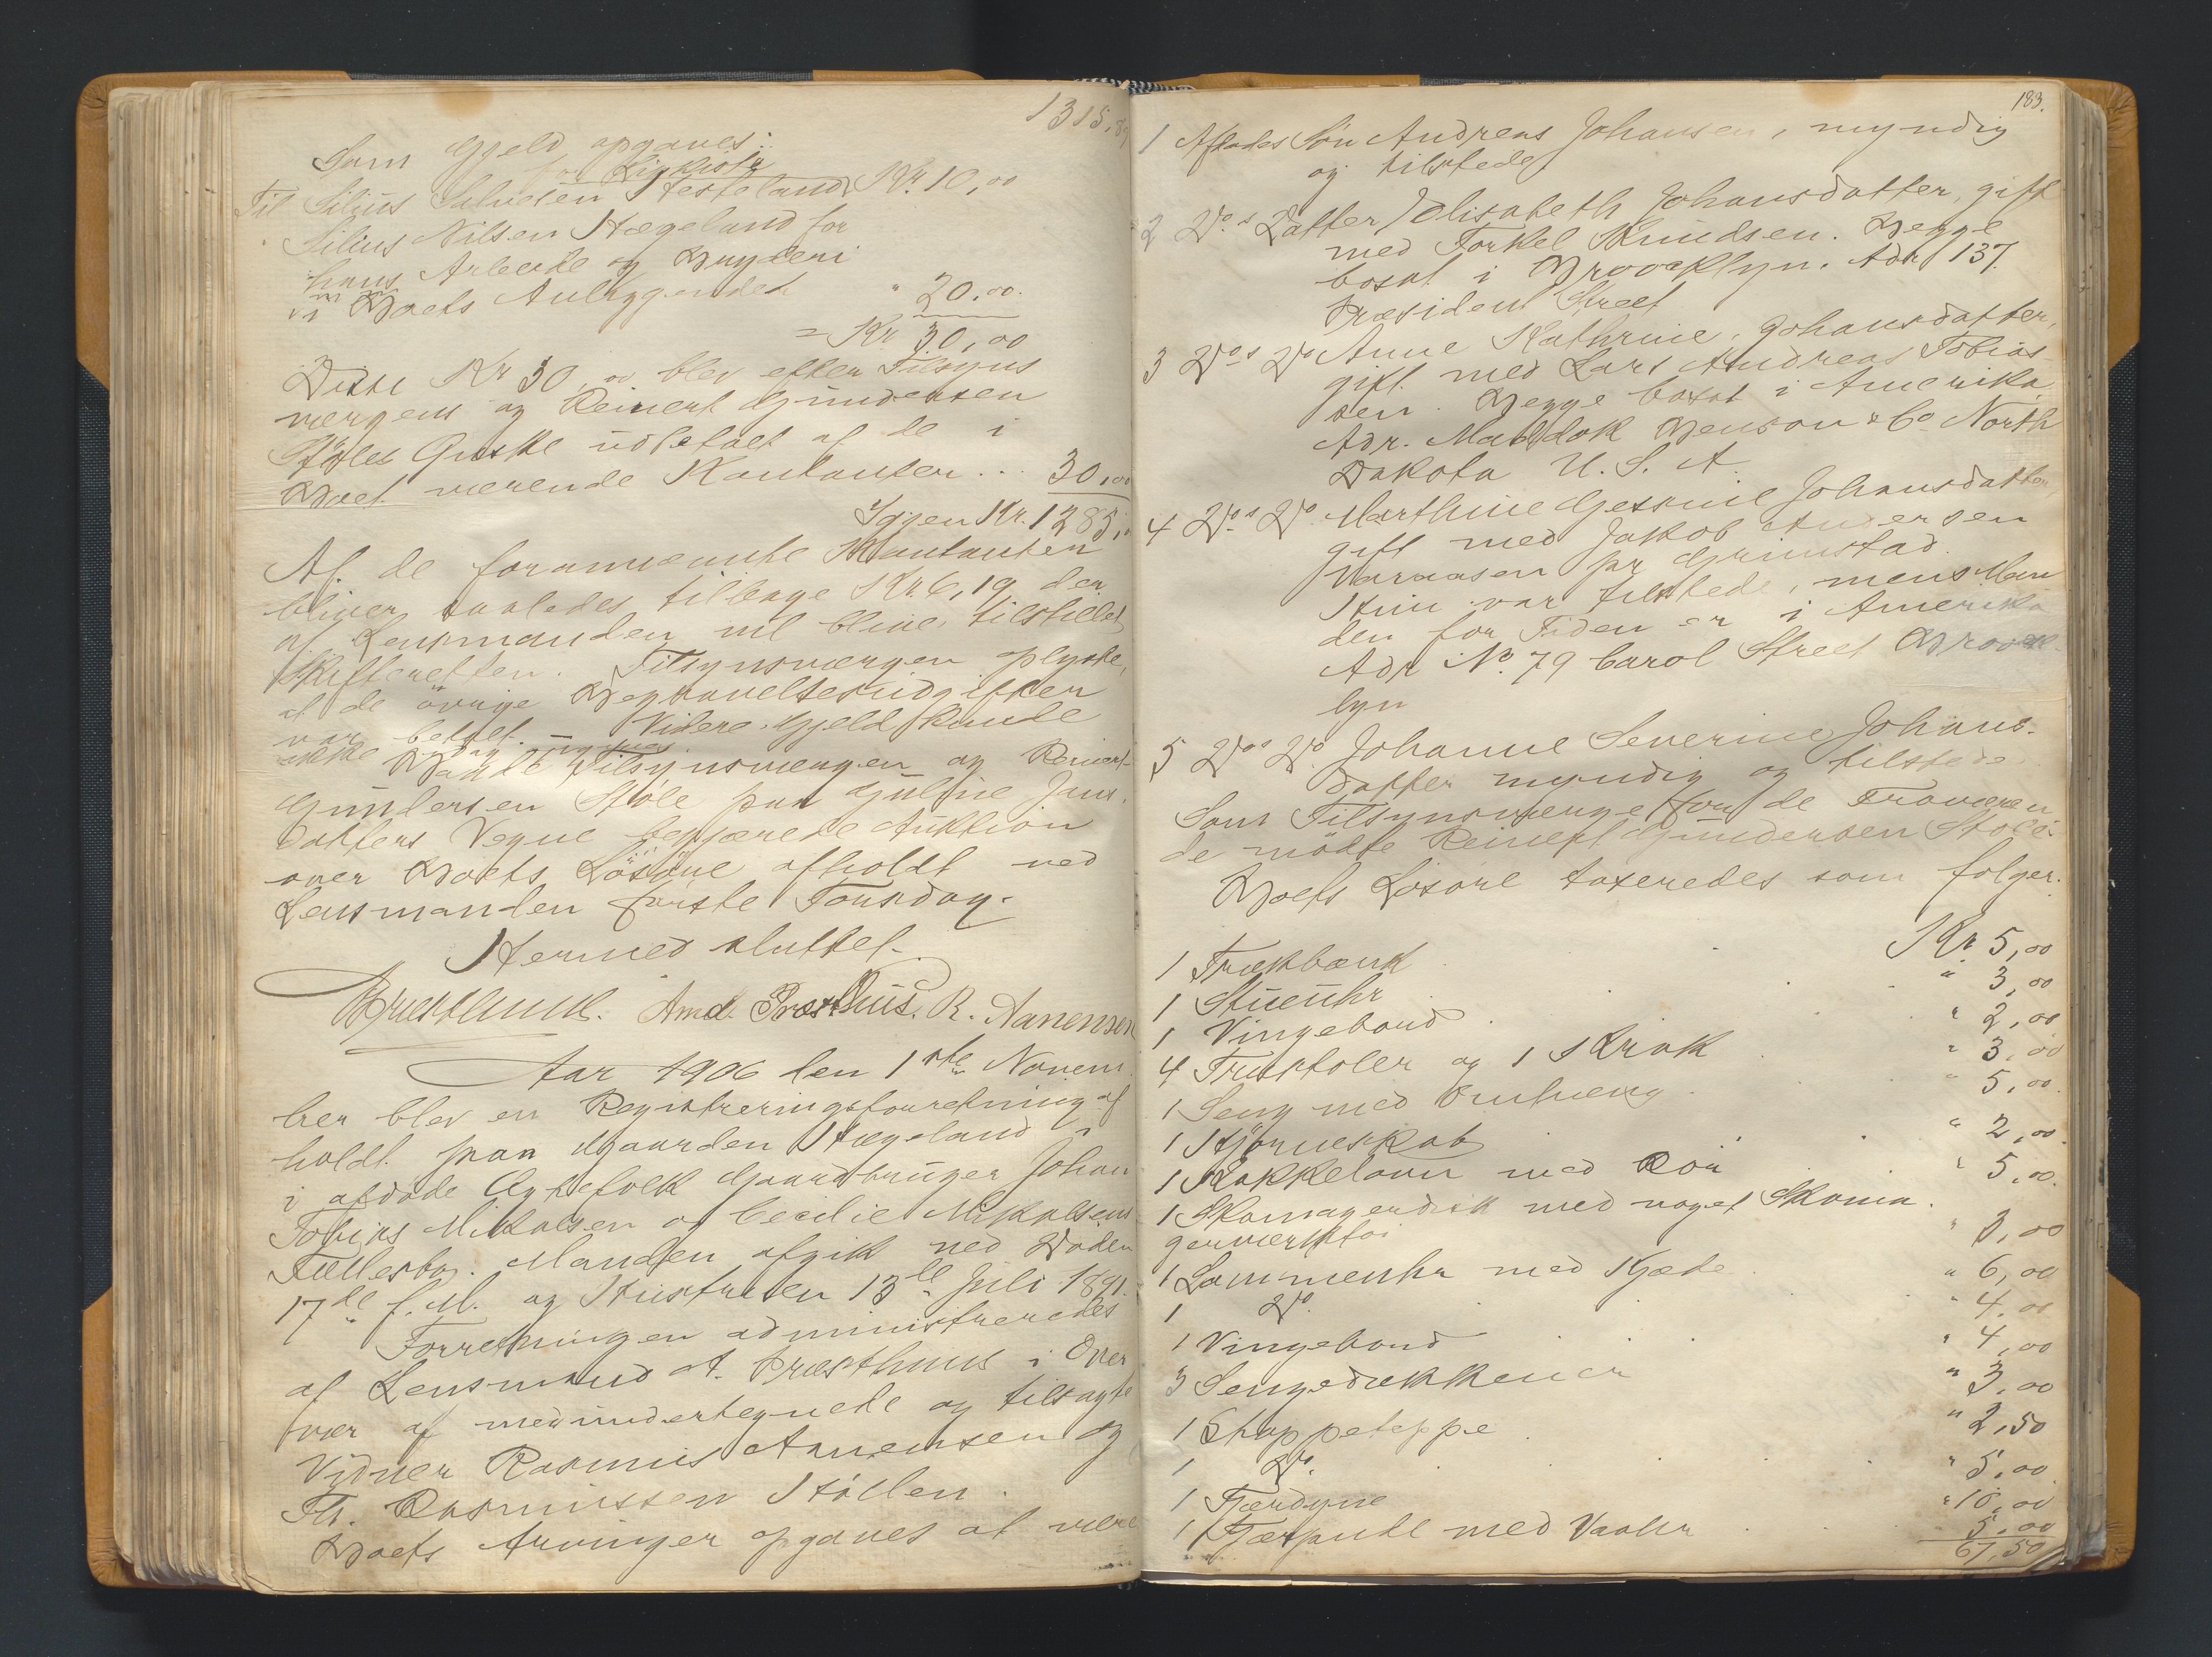 1315,89
Som Gjeld opgaves:
for Ligkiste
Til Silius Salvesen Hesteland Kr. 10,00
Silius Nilsen Hægeland for
hans Arbeide og Bryderi
m m
i Boets Anliggender " 20,00.
= Kr 30,00
Disse Kr 30,00 blev efter Tilsyns
værgens og Reinert Gundersen
Støles Ønske udbetalt af de i
Boet værende Kontanter ... 30,00
Igjen Kr. 1285,
Af de forannævnte Kontanter
bliver saaledes tilbage Kr. 6,19 der
af Lensmanden vil blive tilstillet
Skifteretten. Tilsynsværgen oplyste,
at de övrige Begravelsesudgifter
var betalt. Videre Gjeld kunde
ikke idag opgives.
Baade Tilsynsværgen og Reinert
Gundersen Støle paa Guline Jans
datters Vegne begjærede Auktion
over Boets Lösöre afholdt ved
Lensmanden förste Torsdag.
Hermed sluttet.
APræsthuus. Amd. Præsthus. R. Aanensen
Aar 1906 den 1ste Novem
ber blev en Registreringsforretning af
holdt paa Gaarden Hægeland i
i afdöde Ægtefolk Gaardbruger Johan
Tobias Mikalsen og Cecilie Mikalsens
Fællesbo. Manden afgik ved Döden
17de f.M. og Hustruen 13de Juli 1891.
Forretningen administreredes
af Lensmand A. Præsthuus i Over
vær af medundertegnede og tilsagte
Vidner Rasmus Aanensen og
Th. Rasmussen Stöllen.
Boets Arvinger opgaves at være
183.
1 Afdødes Sön Andreas Johansen, myndig
og tilstede
2 Do.s Datter Elisabeth Johansdatter, gift
med Torkel Knudsen. Begge
bosat i Broocklyn. Adr 137
Præsident Street
3 Do.s Do Anne Kathrine Johansdatter,
gift med Lars Andreas Tobias
sen. Begge bosat i Amerika
Adr. Maddok Benson & Co North
Dakota U.S.A.
4 Do.s Do. Marthine Gessine Johansdatter,
gift med Jakob Andersen
paa Grimstad.
Hun var tilstede, mens Man
den for Tiden er i Amerika
Adr. No. 79 Carol Street Broock
lyn
5 Do.s Do. Johanne Severine Johans-
datter myndig og tilstede
Som Tilsynsværge for de Fraværen
de mödte Reinert Gundersen Stöle.
Boets Lösöre taxeredes som fölger.
1 Trækbænk Kr. 5,00
1 Stueuhr " 3,00
1 Vingebord " 2,00
4 Træstoler og 1 Krak " 3,00
1 Seng med Omhæng " 5,00
1 Hjörneskab " 2,00
1 Kakkelovn med Rör " 5,00.
1 Skomagerdisk med noget Skoma
gerværktöi " 3,00
1 Lommeuhr med Kjæde " 6,00
1 Do. " 4,00
1 Vingebord " 4,00
3 Sengedækkener " 3,00
1 Stoppeteppe " 2,50
1 Do. " 5,00
1 Fjærdyne " 10,00
1 Fjærpude med Vaahr 5,00
67,50